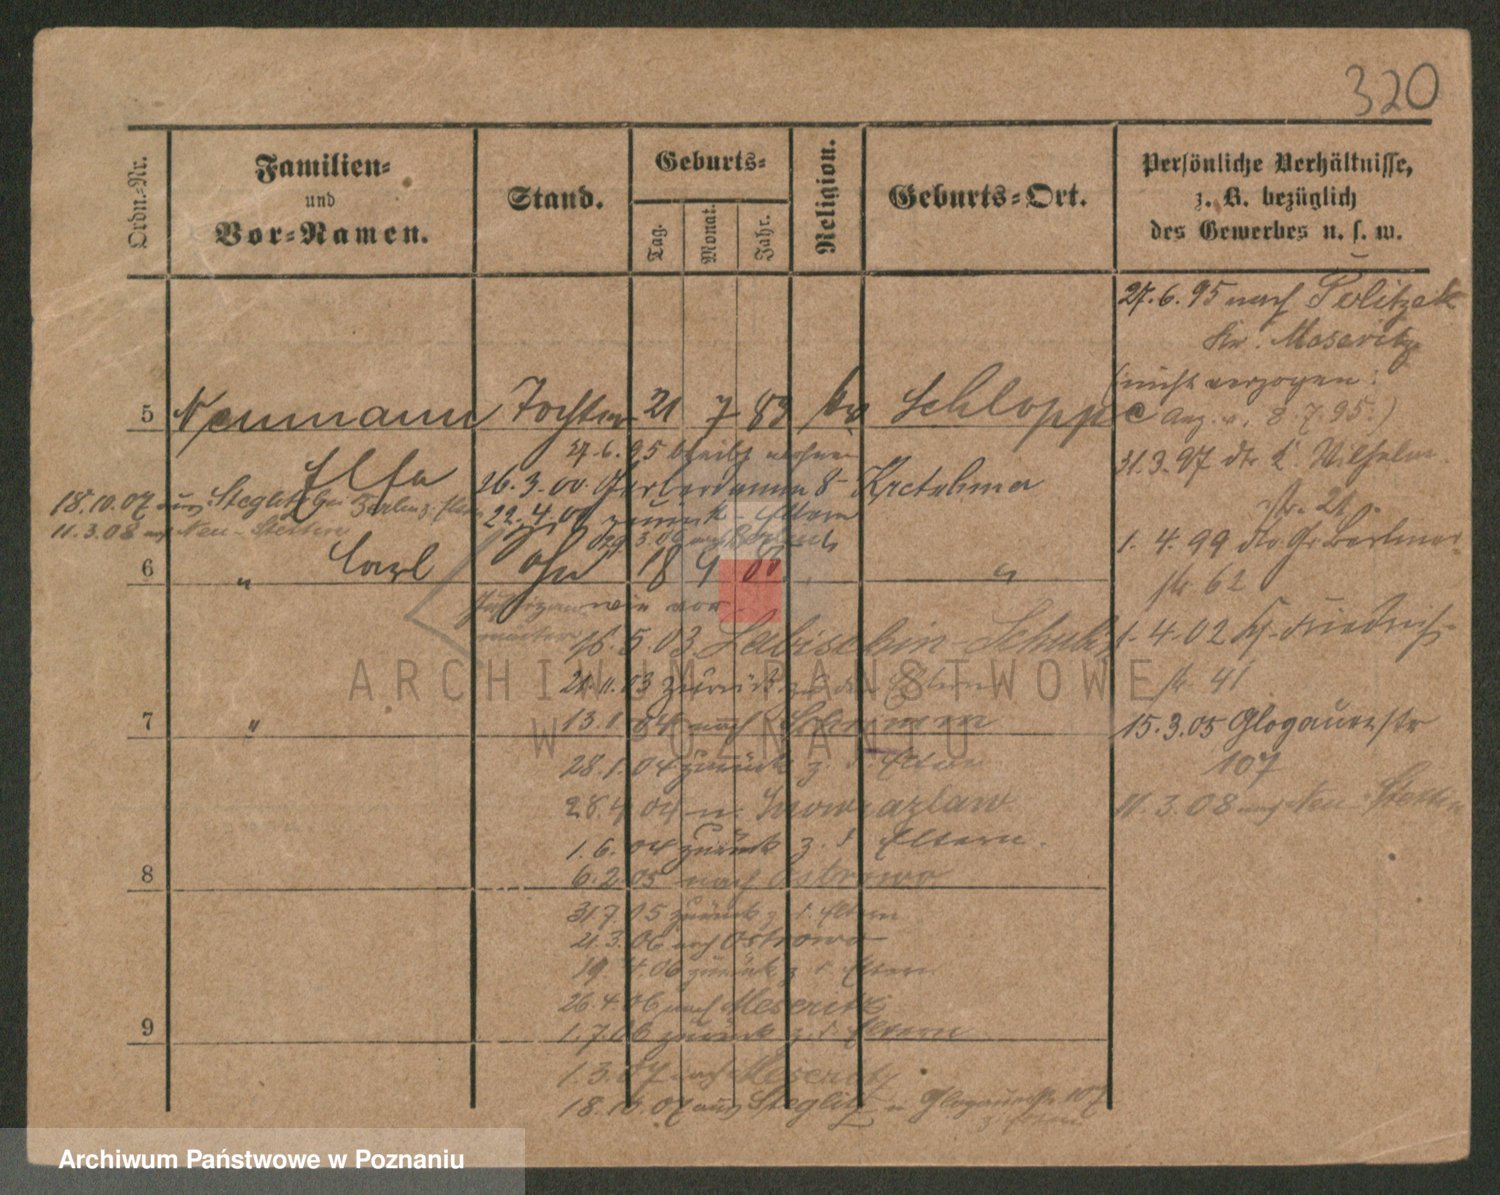 320
Ordn.-Nr.
Familien-
und
Vor-Namen.
Stand.
Geburts-
Tag.
Monat.
Jahr.
Religion.
Geburts-Ort.
Persönliche Verhältnisse,
z. B. bezüglich
des Gewerbes u. s. w.
27. 6. 95 nach
Kr.
(nicht verzogen:
5 Neumann Tochter 21 7 Schloppe
Anz. v. 8. 7. 95.)
27. 6. 95 bleibt wohnen
31. 3. 97 Wilhelm
str. 21.
Elsa
26. 3. 00 Gerberdamm 8
18. 10. 07 aus Steglitz bei Berlin z. Eltern
22. 4. 00 zurück Eltern
11. 3. 08 nach Neu-Stettin
1. 4. 99 Gr. Berliner
str 62
6 " Carl Sohn 18 9 "
wie vor
16. 5. 03 Labischin
1. 4. 02 Friedrich
str 41
21. 11. 03 zurück zu den Eltern
ARCHIWUM PAŃSTWOWE
W POZNANIU
7 "
13. 1. 04 nach
15. 3. 05 Glogauerstr
107
28. 1. 04 zurück z. d. Eltern
28. 4. 04 n. Inowrazlaw
11. 3. 08 nach Neu-Stettin
1. 6. 04 zurück z. d. Eltern.
8
6. 2. 05 nach Ostrowo
31. 7. 05 zurück z. d. Eltern
21. 3. 06 nach Ostrowo
19. 4. 06 zurück z. d. Eltern
26. 4. 06 nach Meseritz
9
1. 7. 06 zurück z. d. Eltern
1. 3. 07 nach Meseritz
18. 10. 07 aus Steglitz n. Glogauerstr. 107
z. Eltern
Archiwum Państwowe w Poznaniu